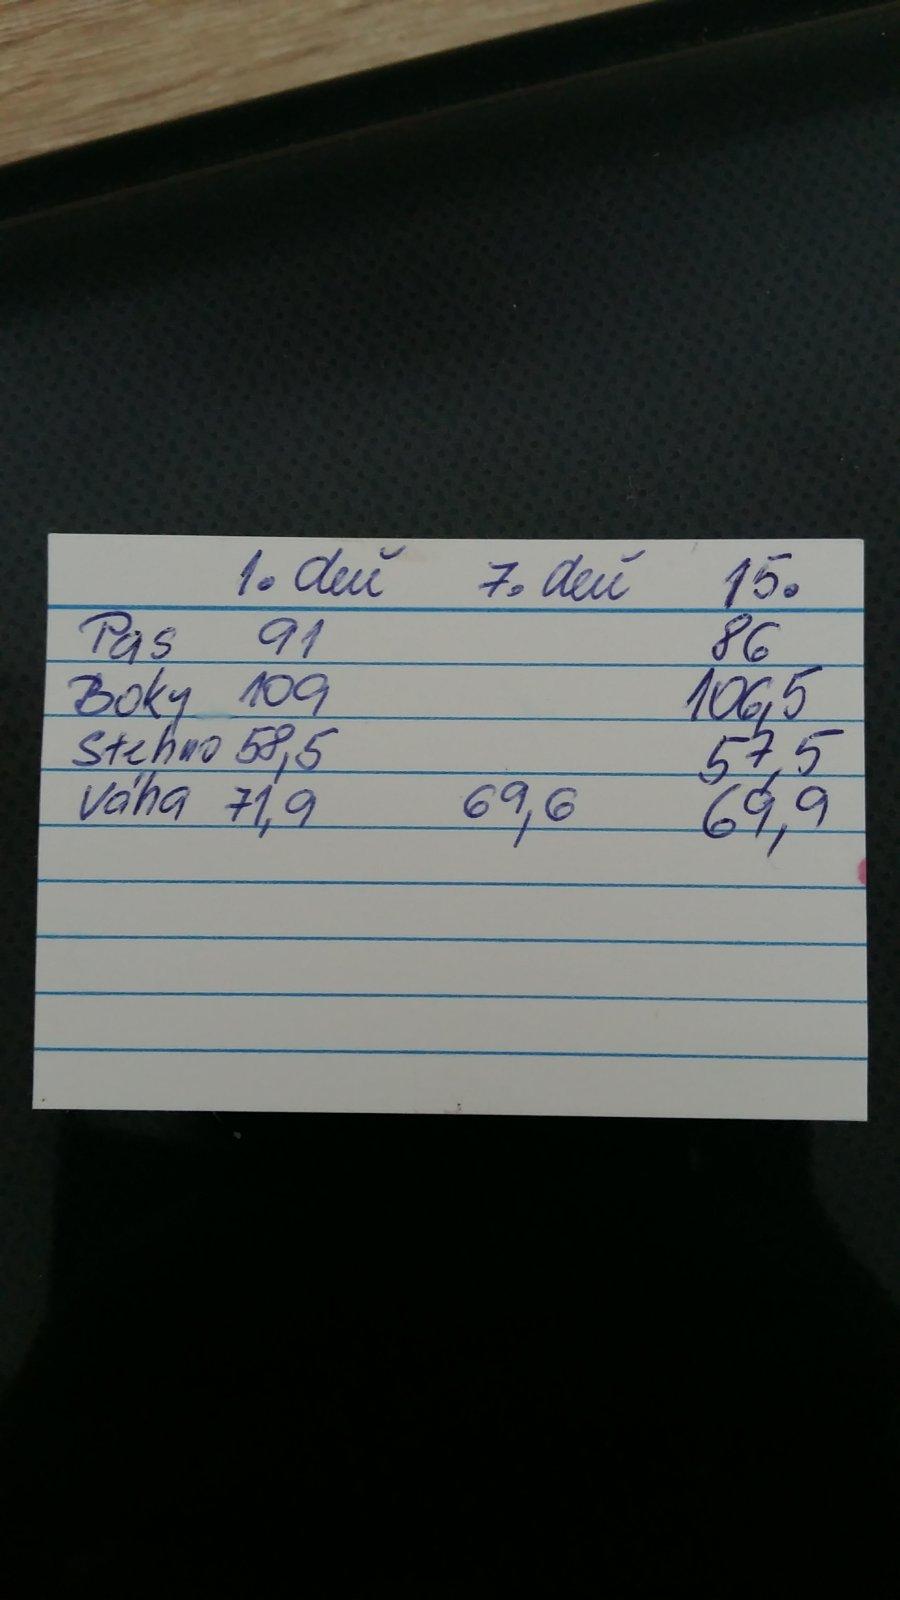 1. deň 7. deň 15.
Pas 91 86
Boky 109 106,5
Stehno 58,5 57,5
Váha 71,9 69,6 69,9